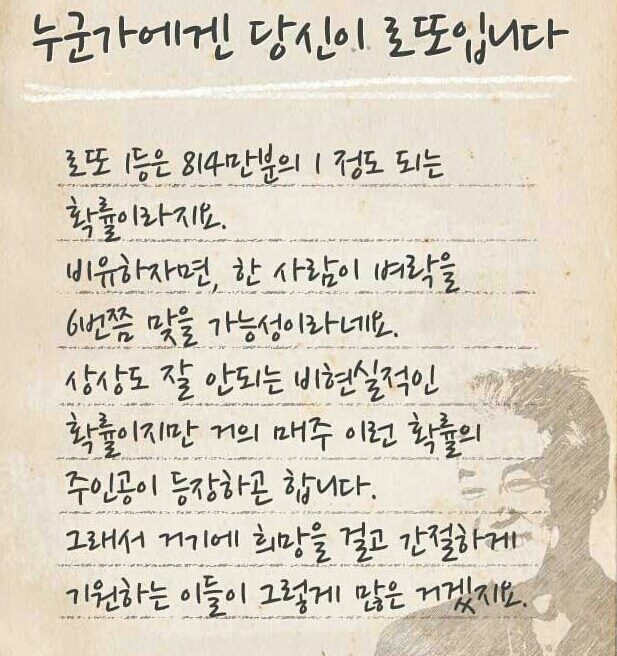 누군가에겐 당신이 로또입니다
로또 1등은 814만분의 1 정도 되는
확률이라지요.
비유하자면, 한 사람이 벼락을
6번쯤 맞을 가능성이라네요.
상상도 잘 안되는 비현실적인
확률이지만 거의 매주 이런 확률의
주인공이 등장하곤 합니다.
그래서 거기에 희망을 걸고 간절하게
기원하는 이들이 그렇게 많은 거겠지요.